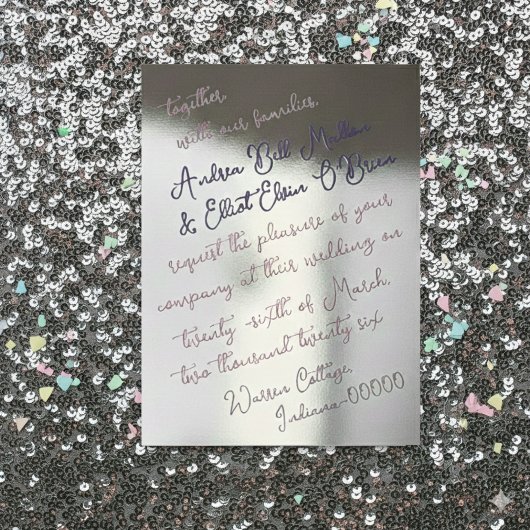 together,
with our families,
Andrea Bell Mallon
& Elliot Elvin O'Brien
request the pleasure of your
company at their wedding on
twenty-sixth of March,
two thousand twenty six
Warren Cottage,
Indiana-00000